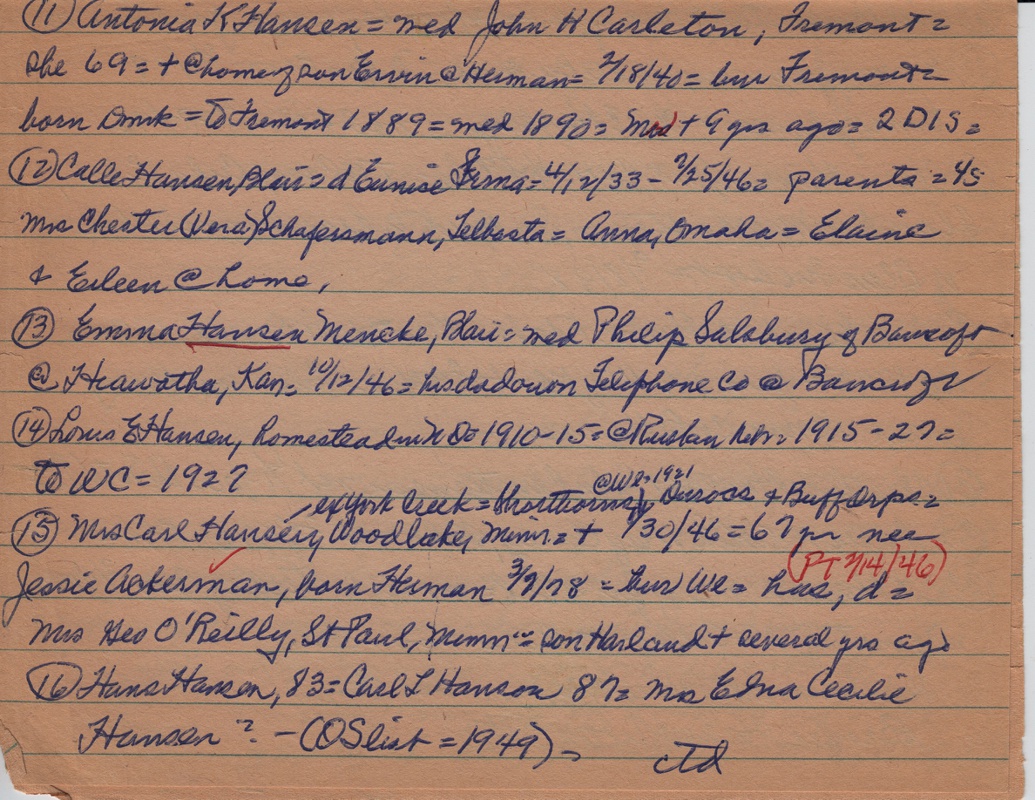 (11) Antonia K Hansen = med John H Carleton, Fremont =
she 69 = + @ home of son Ervin @ Herman = 2/18/40 = bur Fremont =
born Dmrk = to Fremont 1889 = med 1890 = + 9 yrs ago = 2 D 1 S =
(12) Calle Hansen, Blair = d Eunice Irma = 4/12/33 - 2/25/46 = parents = 4s
Mrs Chester (Vera) Schafersmann, Telbasta = Anna, Omaha = Elaine
& Eileen @ home,
(13) Emma Hansen Mencke, Blair = med Philip Salsbury of Bancroft
@ Hiawatha, Kan = 10/12/46 = his dad own Telephone Co @ Bancroft
(14) Louis E Hansen, homestead in 1910-15 = @ Ruskin Nebr = 1915-27 =
to WC = 1927
@ We = 1921
ex York Creek = Shorthorns, Durocs & Buff Orps =
(15) Mrs Carl Hansen, Woodlake, Minn = + 1/30/46 = 67 yr nee
(PT 2/14/46)
Jessie Ackerman, born Herman 3/2/78 = bur We = hus, d =
Mrs Geo O'Reilly, St Paul, Minn = son Harland + several yrs ago
(16) Hans Hansen, 83 = Carl L Hanson 87 = Mrs Edna Cecilie
Hansen ? - (OS list = 1949) =
ctd